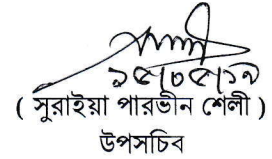 ( সুরাইয়া পারভীন শেলী )
উপসচিব